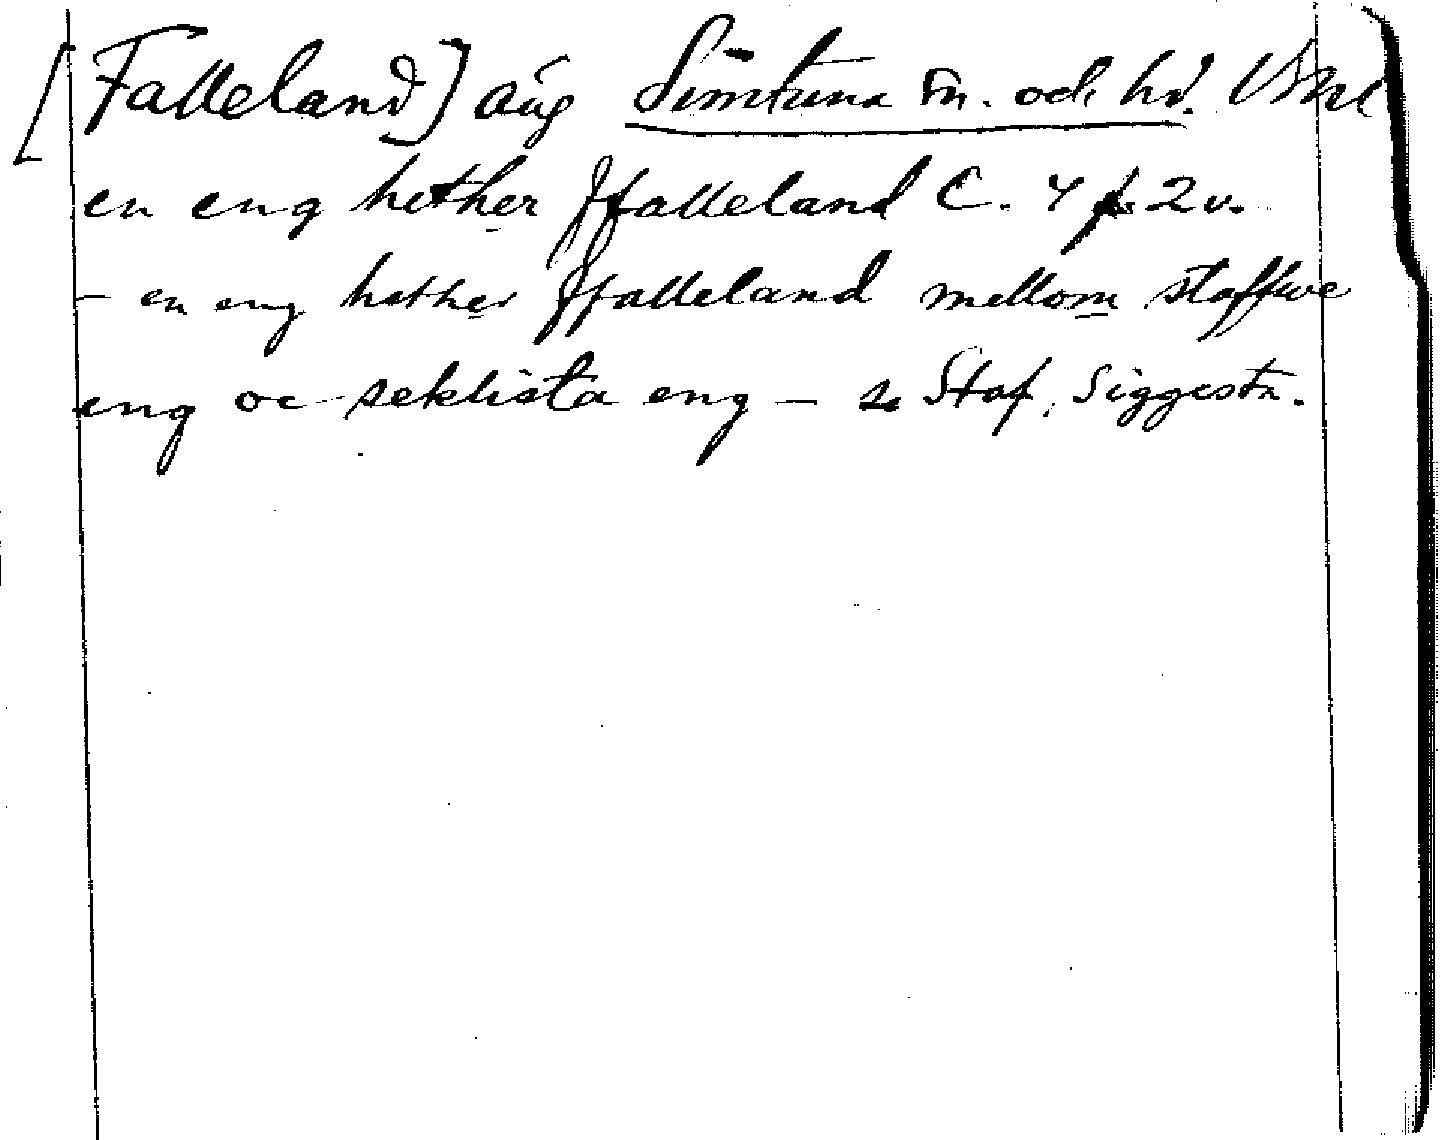 [Falleland] äng Simtuna sn. och hd. Upl
en eng hether ffalleland C. 4 f. 2 v.
– en eng hether ffalleland mellom staffwe
eng oc seklista eng – se Staf, Siggestn.